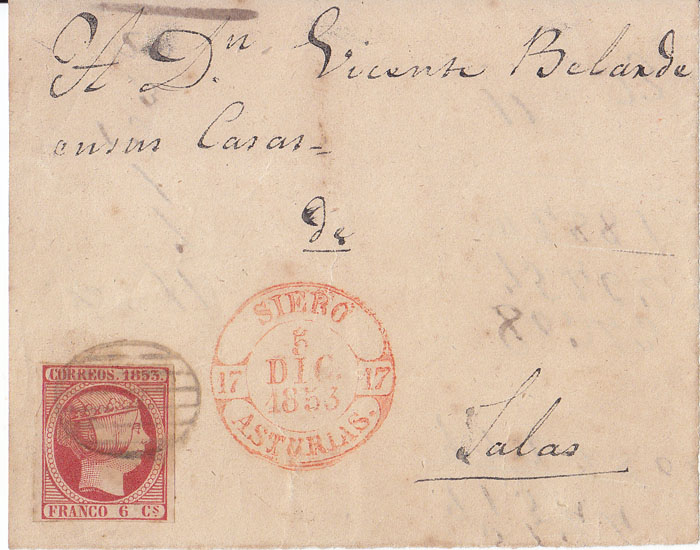 A Dn Vicente Belarde
ensus Casas-
de
Salas
SIERO
5
DIC.
1853
17 17
ASTURIAS.
CORREOS. 1853.
FRANCO 6 Cs
8